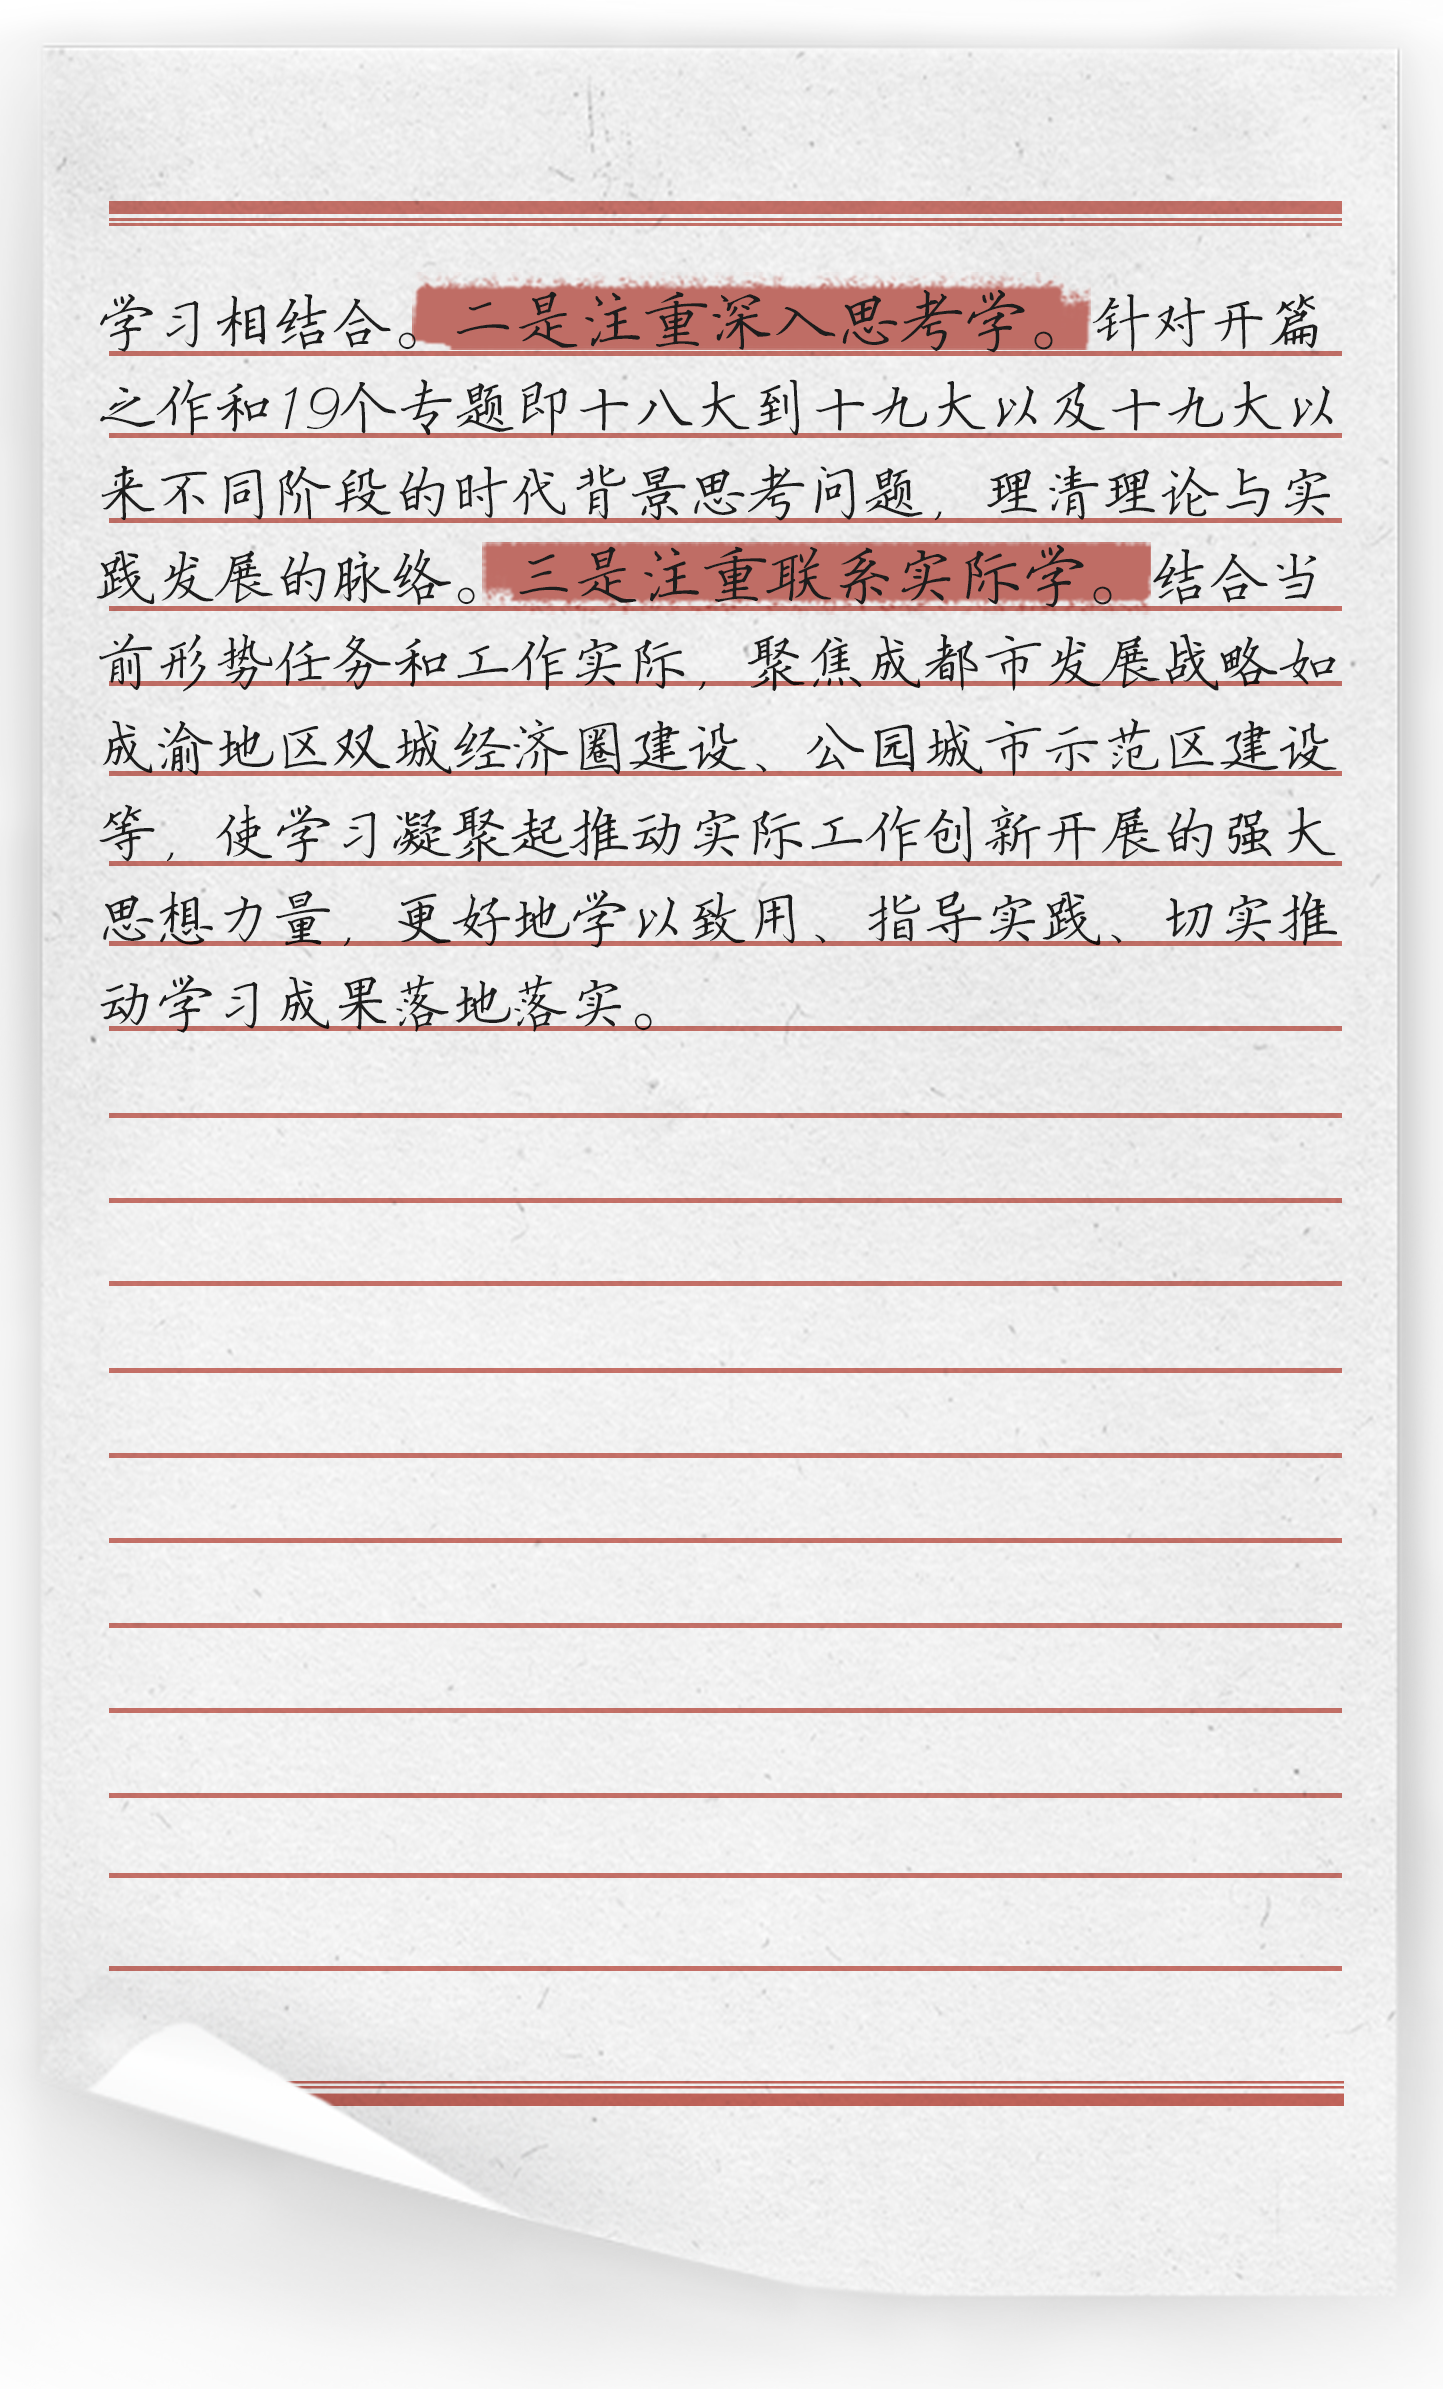 学习相结合。二是注重深入思考学。针对开篇
之作和19个专题即十八大到十九大以及十九大以
来不同阶段的时代背景思考问题，理清理论与实
践发展的脉络。三是注重联系实际学。结合当
前形势任务和工作实际，聚焦成都市发展战略如
成渝地区双城经济圈建设、公园城市示范区建设
等，使学习凝聚起推动实际工作创新开展的强大
思想力量，更好地学以致用、指导实践、切实推
动学习成果落地落实。